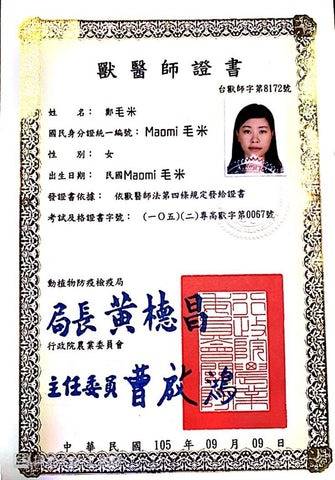 獸醫師證書
台獸師字第8172號
姓名：鄭毛米
國民身分證統一編號：Maomi 毛米
性別：女
出生日期：民國Maomi 毛米
發證書依據：依獸醫師法第四條規定發給證書
考試及格證書字號：（一○五）（二）專高獸字第0067號
動植物防疫檢疫局
局長 黃㯖昌
行政院農業委員會
主任委員 曹啟鴻
中華民國 105 年 09 月 09 日